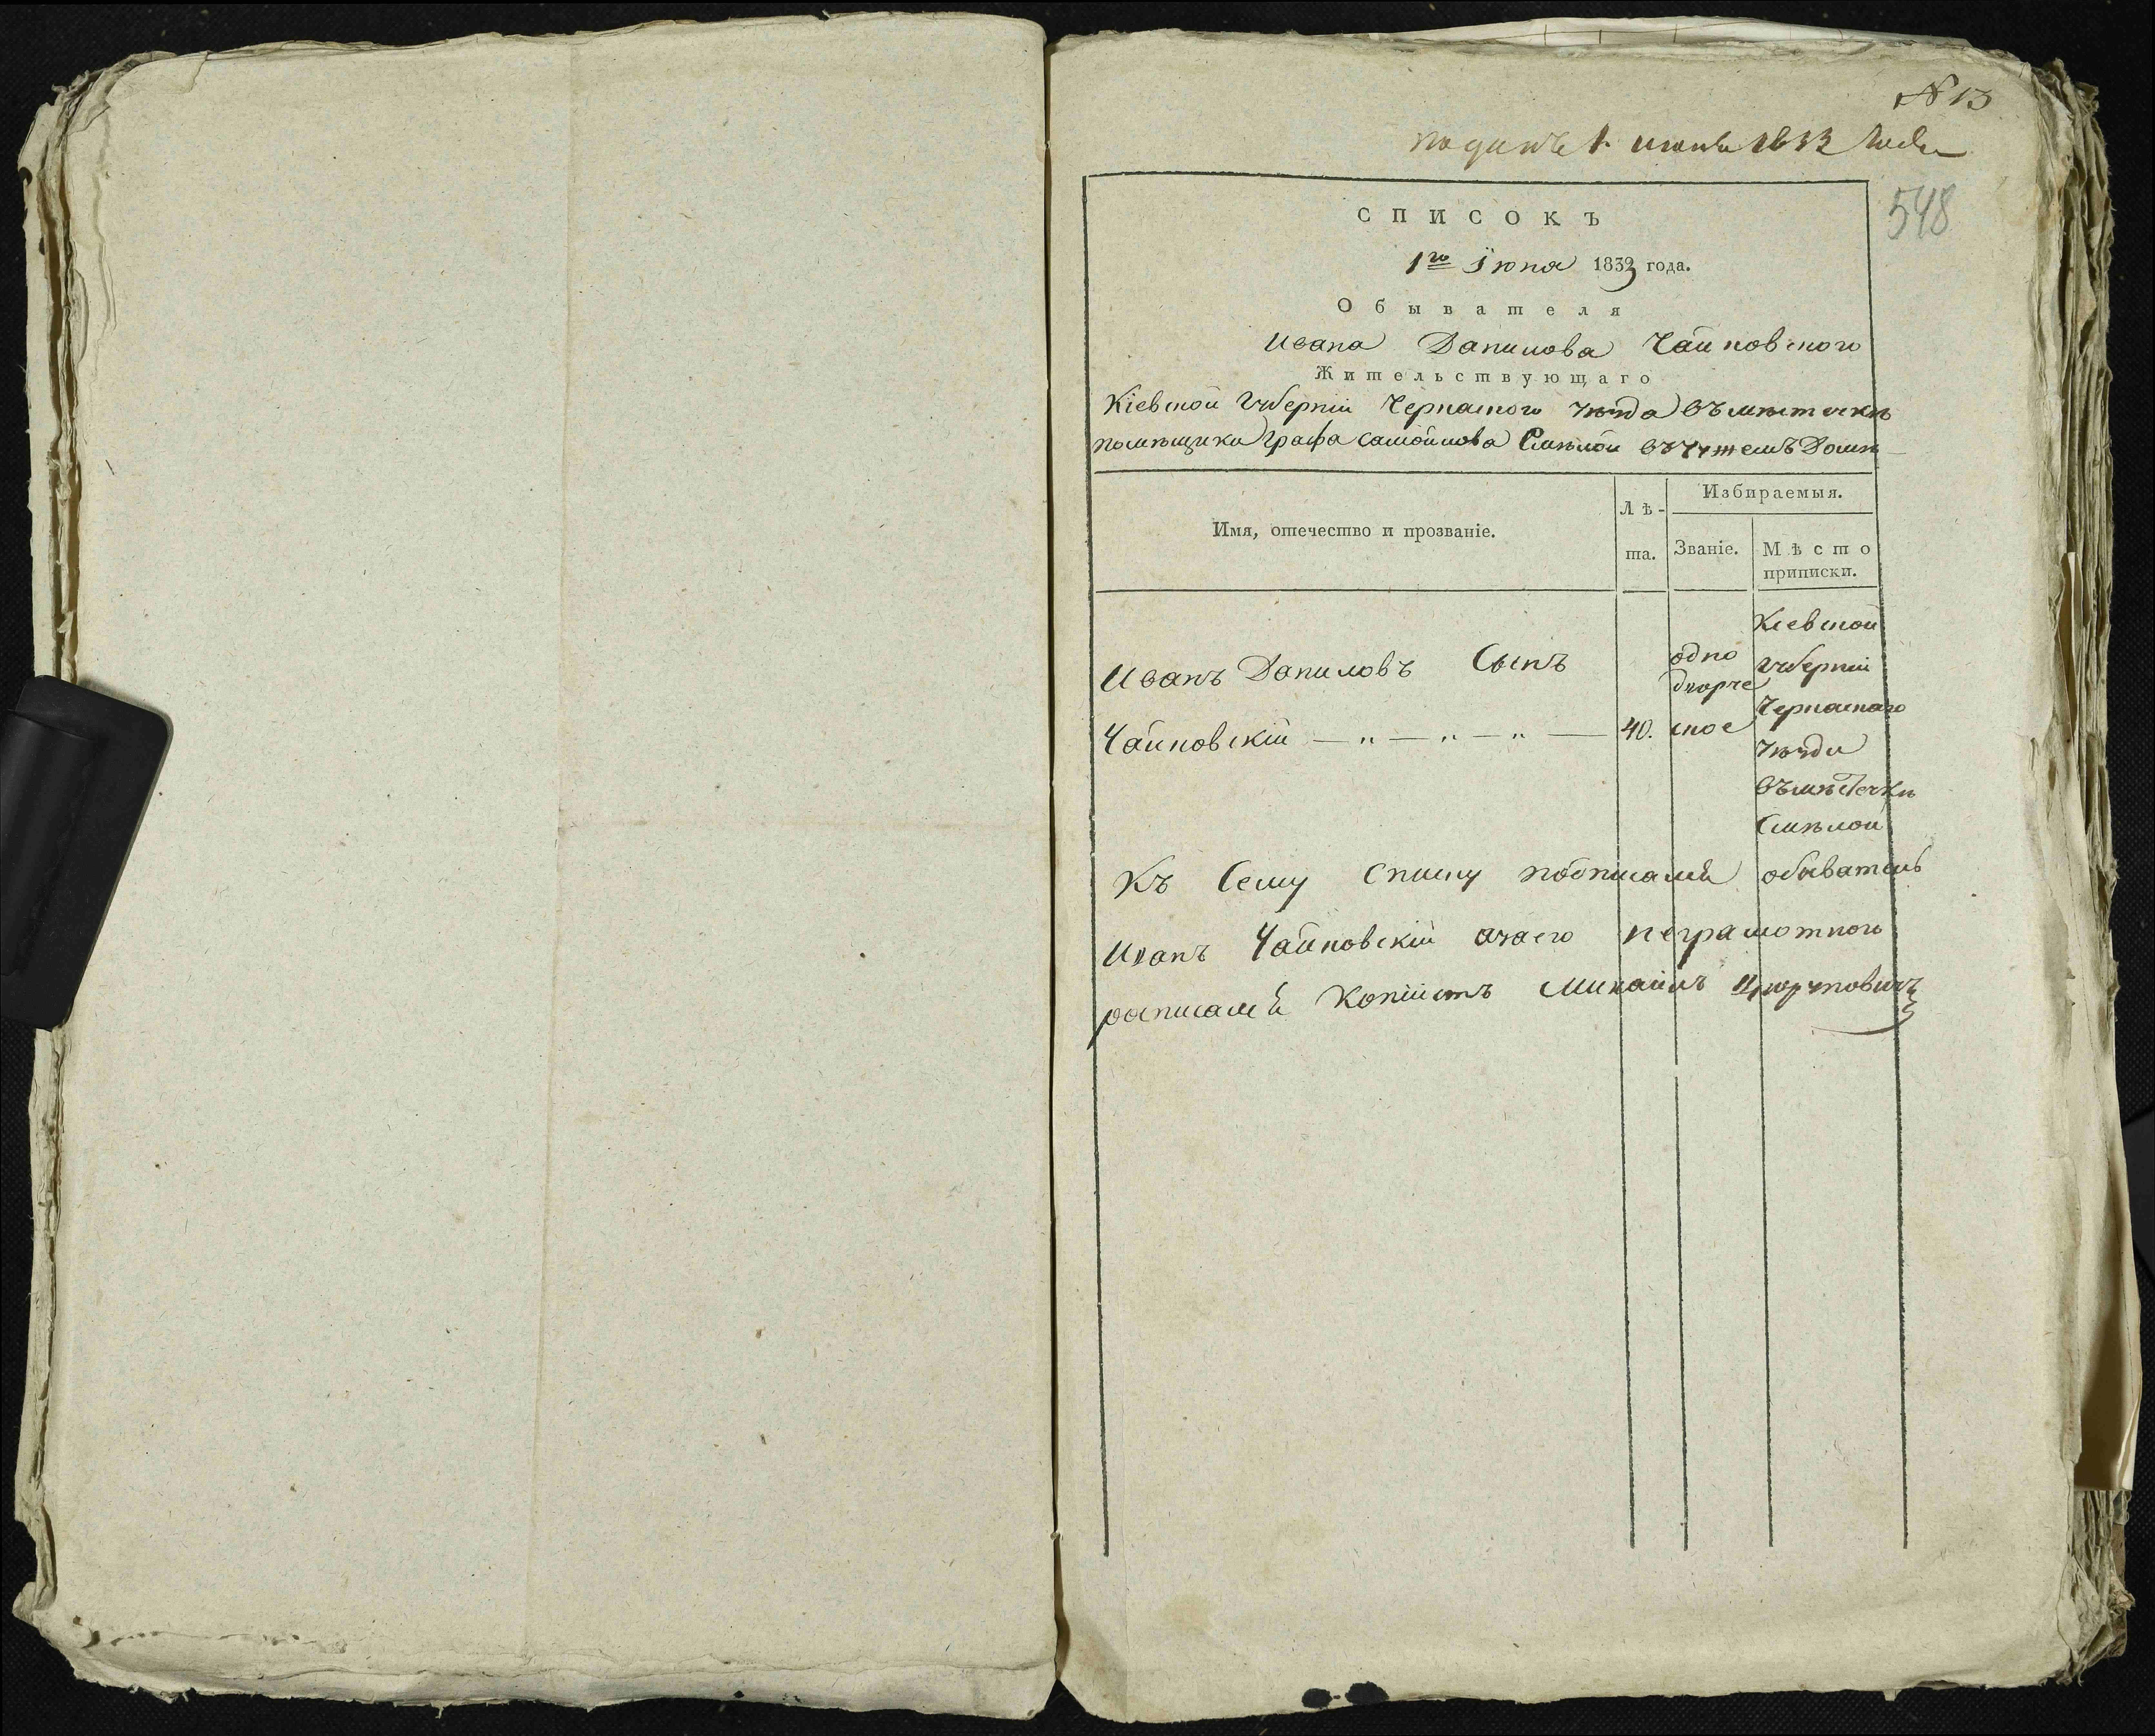 № 13
поданъ 1. июня 1833 года
548
СПИСОКЪ
1го Іюня 1833 года.
Обывателя
Ивана Данилова Чайковского
Жительствующаго
Кіевской Губерніи Черкаского уѣзда въ мѣстечкѣ
помѣщика Графа Самойлова Смѣлой въ чужемъ Домѣ
Имя, отечество и прозваніе.
Лѣ-
та.
Избираемыя.
Званіе.
Мѣсто
приписки.
Иванъ Даниловъ Сынъ
Чайковскій — „ — „ — „ —
40.
одно
дворче
ское
Кіевской
Губерніи
Черкаскаго
уѣзда
въ мѣстечкѣ
Смѣлой
Къ Сему Списку подписался обыватель
Иванъ Чайковскій а за его неграмотного
росписался Копіистъ Михаилъ